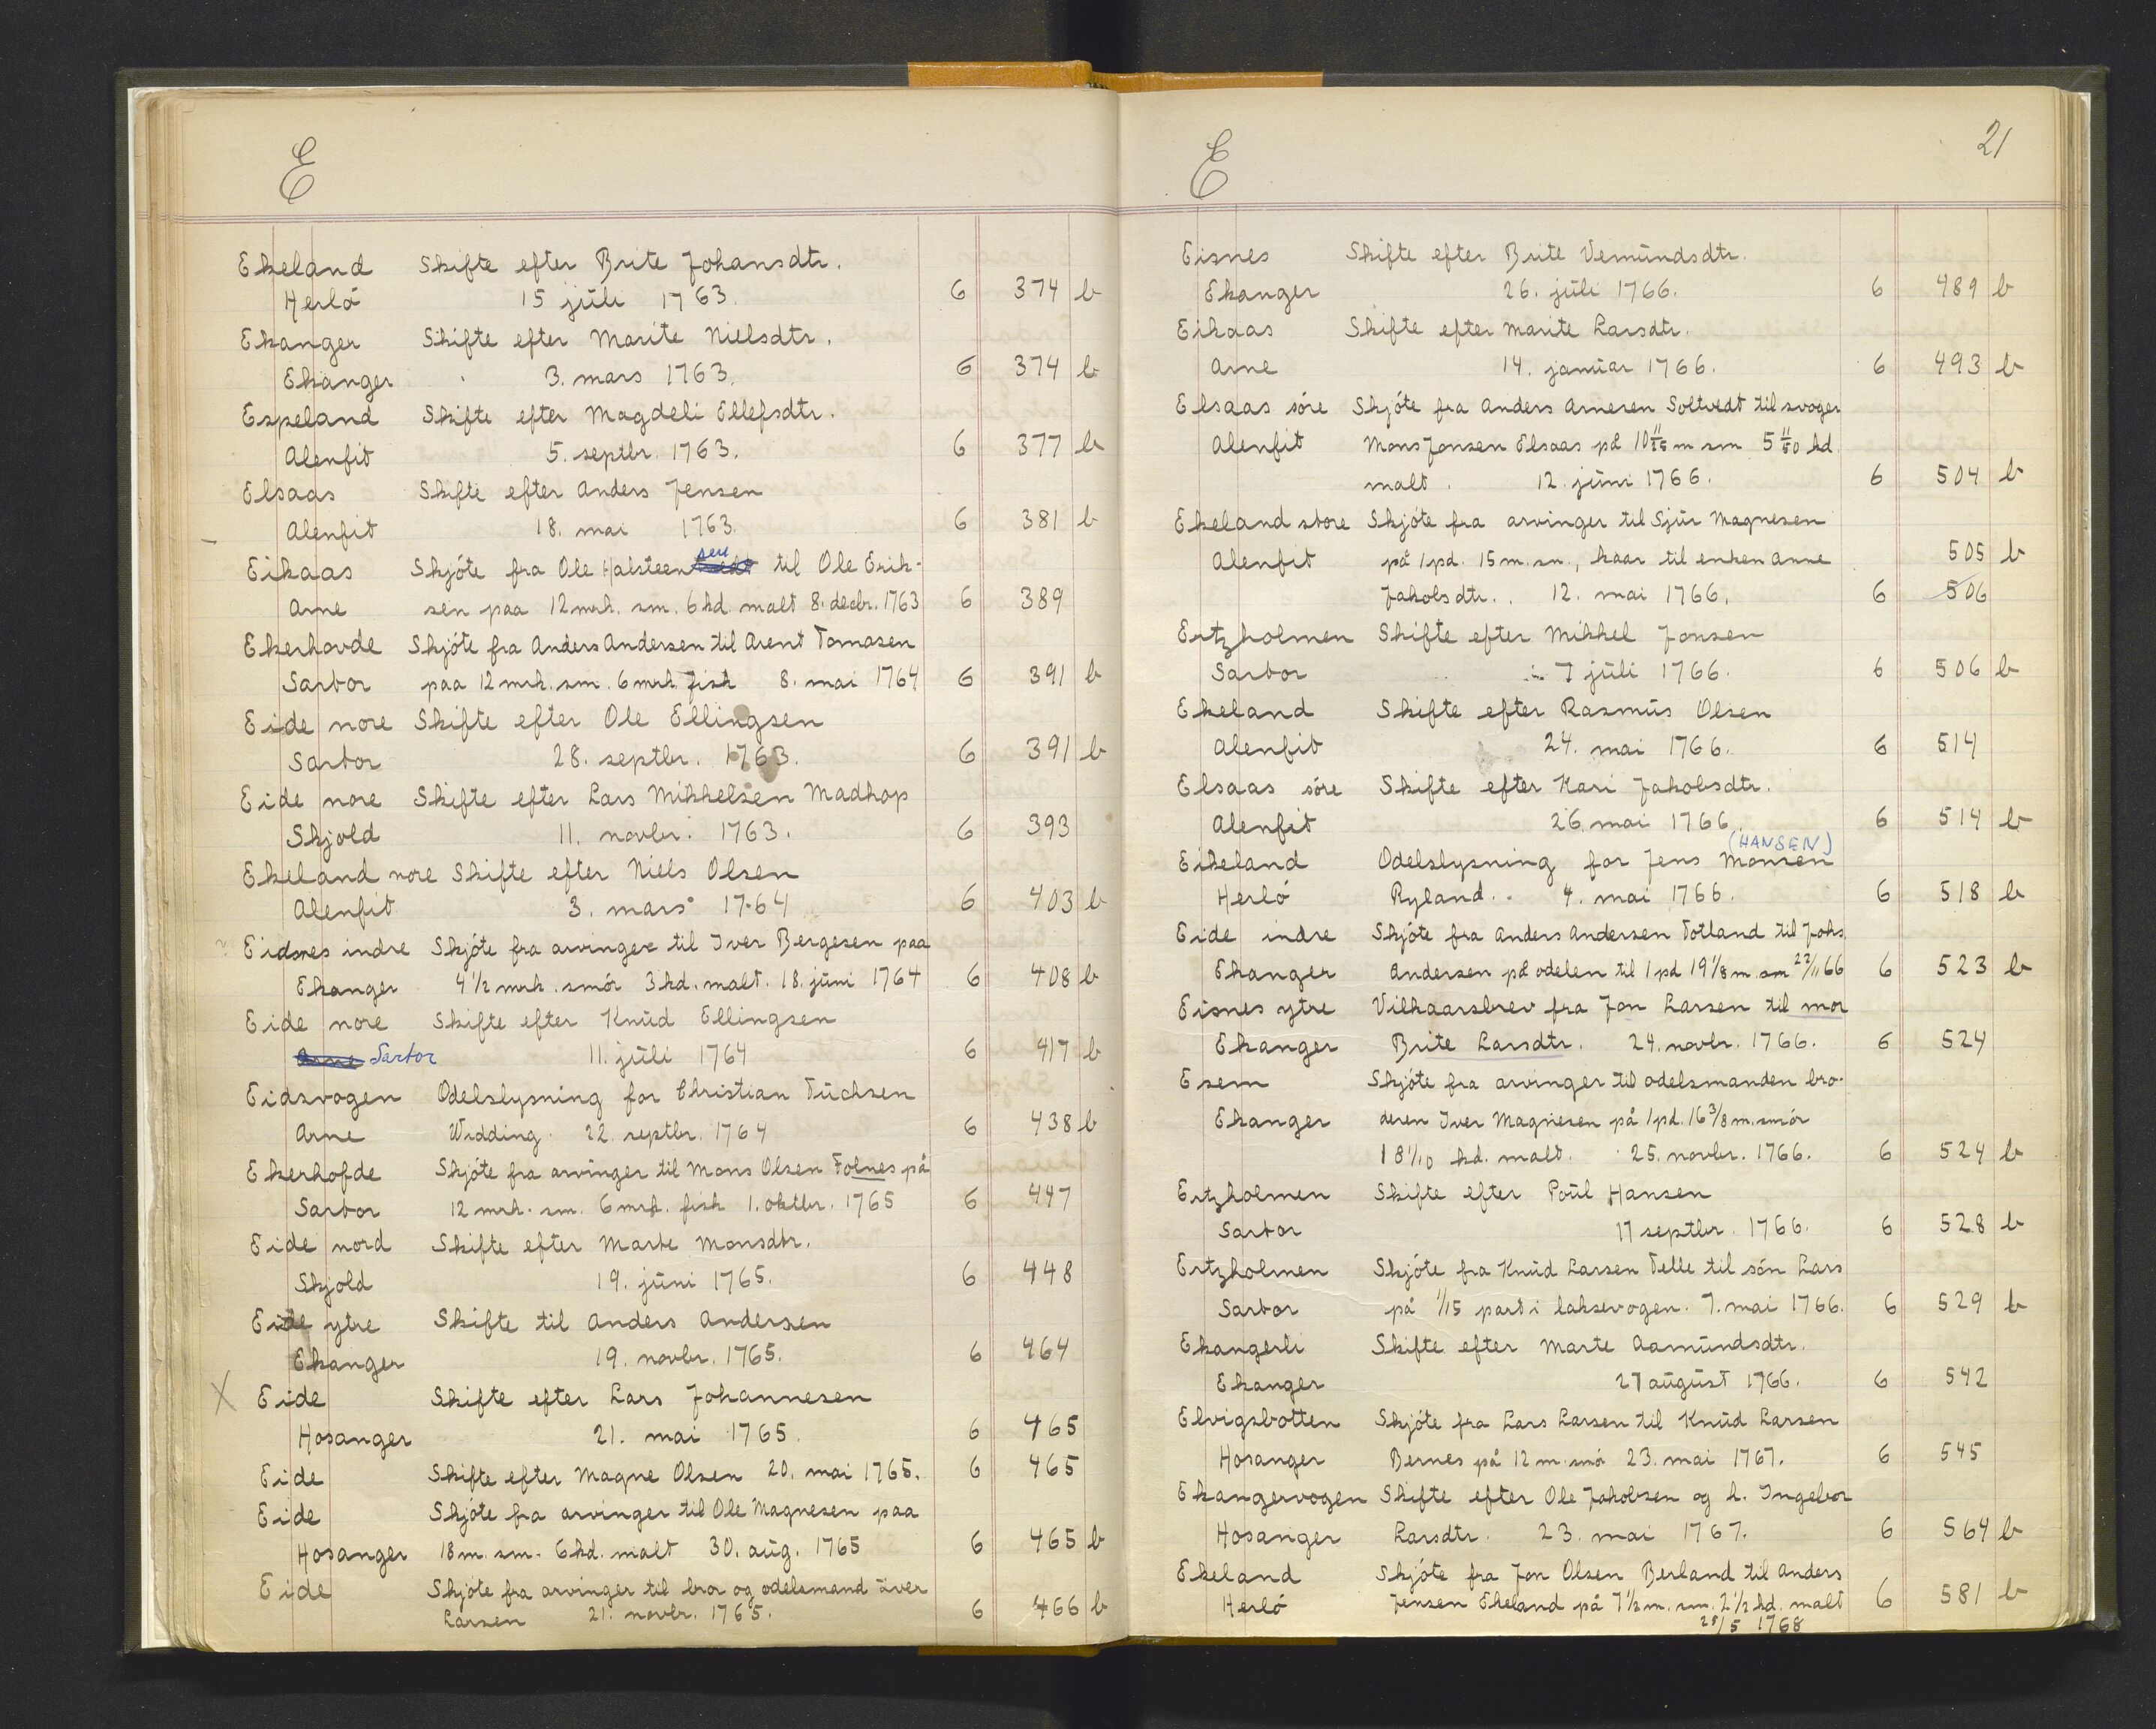 E
Ekeland Skifte efter Brite Johansdtr.
Herlö 15 jüli 1763. 6 374 b
Ekanger Skifte efter Marite Nielsdtr.
Ekanger 3. mars 1763. 6 374 b
Espeland Skifte efter Magdeli Ellefsdtr.
Alenfit 5. septbr. 1763. 6 377 b
Elsaas Skifte efter Anders Jensen
Alenfit 18. mai 1763. 6 381 b
Eikaas Skjöte fra Ole Halsteensen til Ole Erik-
Arne sen paa 12 mrk. sm. 6 kd. malt 8. decbr. 1763 6 389
Ekerhovde Skjöte fra Anders Andersen til Arent Tomasen
Sartor paa 12 mrk. sm. 6 mrk. fisk 8. mai 1764 6 391 b
Eide nore Skifte efter Ole Ellingsen
Sartor 28. septbr. 1763. 6 391 b
Eide nore Skifte efter Lars Mikkelsen Madhop
Skjold 11. novbr. 1763. 6 393
Ekeland nore Skifte efter Niels Olsen
Alenfit 3. mars 1764 6 403 b
Eidsnes indre Skjöte fra arvinger til Iver Bergesen paa
Ekanger 4 1/2 mrk. smör 3 kd. malt. 18. jüni 1764 6 408 b
Eide nore Skifte efter Knüd Ellingsen
Arne Sartor 11. jüli 1764 6 417 b
Eidsvogen Odelslysning for Christian Tüchsen
Arne Widding. 22. septbr. 1764 6 438 b
Ekerhofde Skjöte fra arvinger til Mons Olsen Folnes på
Sartor 12 mrk. sm. 6 mrk. fisk 1. oktbr. 1765 6 447
Eide nord Skifte efter Marte Monsdtr.
Skjold 19. jüni 1765. 6 448
Eide ytre Skifte til Anders Andersen
Ekanger 19. novbr. 1765. 6 464
X Eide Skifte efter Lars Johannesen
Hosanger 21. mai 1765. 6 465
Eide Skifte efter Magne Olsen 20. mai 1765. 6 465
Eide Skjöte fra arvinger til Ole Magnesen paa
Hosanger 18 m. sm. 6 kd. malt 30. aüg. 1765 6 465 b
Eide Skjöte fra arvinger til bror og odelsmand iver
Larsen 21. novbr. 1765. 6 466 b
E 21
Eisnes Skifte efter Brite Vemündsdtr.
Ekanger 26. jüli 1766. 6 489 b
Eikaas Skifte efter Marite Larsdtr.
Arne 14. janüar 1766. 6 493 b
Elsaas söre Skjöte fra Anders Arnesen Soltvedt til svoger
Alenfit Mons Jonsen Elsaas på 10 m sm 5 kd.
malt. 12. jüni 1766. 6 504 b
Ekeland store Skjöte fra arvinger til Sjür Magnesen
Alenfit på 1 pd. 15 m. sm., kaar til enken Anne 505 b
Jakobsdtr.. 12. mai 1766. 6 506
Ertzholmen Skifte efter Mikkel Jonsen
Sartor 7 jüli 1766. 6 506 b
Ekeland Skifte efter Rasmüs Olsen
Alenfit 24. mai 1766. 6 514
Elsaas söre Skifte efter Kari Jakobsdtr.
Alenfit 26. mai 1766. 6 514 b
(HANSEN)
Eikeland Odelslysning for Jens Monsen
Herlö Ryland.. 4. mai 1766. 6 518 b
Eide indre Skjöte fra Anders Andersen Totland til Johs
Ekanger Andersen på odelen til 1 pd 19 1/8 m. sm 22/11 66 6 523 b
Eisnes ytre Vilkaarsbrev fra Jon Larsen til mor
Ekanger Brite Larsdtr. 24. novbr. 1766. 6 524
Esem Skjöte fra arvinger til odelsmanden bro-
Ekanger deren Iver Magnesen på 1 pd. 16 3/8 m. smör
1 8 1/10 kd. malt. 25. novbr. 1766. 6 524 b
Ertzholmen Skifte efter Poül Hansen
Sartor 17 septbr. 1766. 6 528 b
Ertzholmen Skjöte fra Knüd Larsen Telle til sön Lars
Sartor på 1/15 part i laksevogen. 7. mai 1766. 6 529 b
Ekangerli Skifte efter Marte Aamündsdtr.
Ekanger 27 aügüst 1766. 6 542
Elvigsbotten Skjöte fra Lars Larsen til Knüd Larsen
Hosanger Bernes på 12 m. smö 23. mai 1767. 6 545
Ekangervogen Skifte efter Ole Jakobsen og h. Ingebor
Hosanger Larsdtr. 23. mai 1767. 6 564 b
Ekeland Skjöte fra Jon Olsen Berland til Anders
Herlö Jensen Ekeland på 7 1/2 m. sm. 2 1/2 kd. malt 6 581 b
25/5 1768